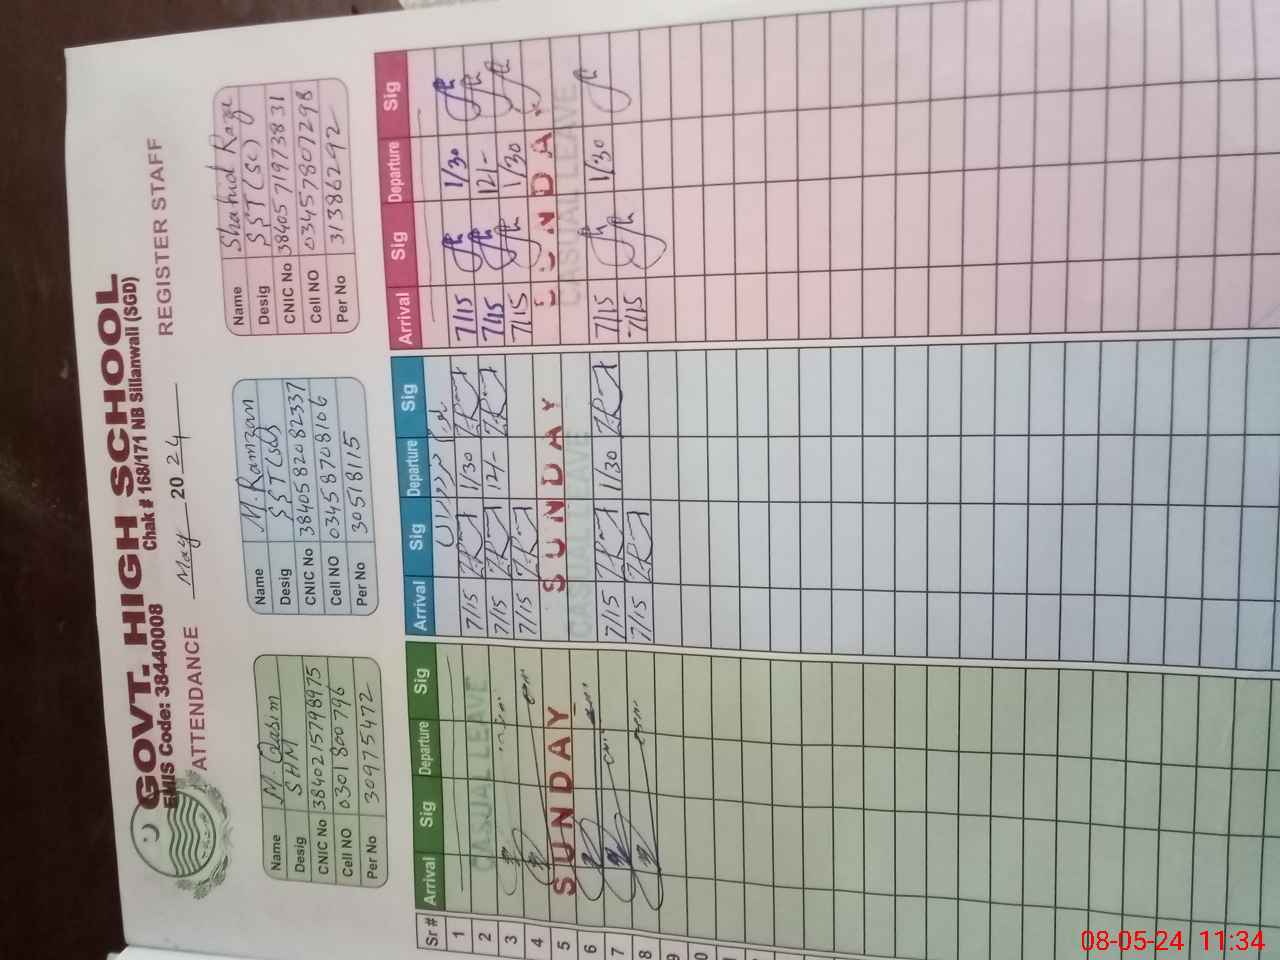 GOVT. HIGH SCHOOL
EMIS Code: 38440008 Chak # 168/171 NB Sillanwali (SGD)
ATTENDANCE May 2024 REGISTER STAFF
Name M. Qasim
Desig SHM
CNIC No 3840215798975
Cell NO 0301800796
Per No 30975472
Name M. Ramzan
Desig SST (sc)
CNIC No 3840582082337
Cell NO 03458708106
Per No 30518115
Name Shahid Raza
Desig SST (sc)
CNIC No 3840571973831
Cell NO 03457807298
Per No 31386292
Sr # Arrival Sig Departure Sig Arrival Sig Departure Sig Arrival Sig Departure Sig
1
2 CASUAL LEAVE 7/15 1/30 7/15 1/30
3 7/15 12/- 7/15 12/-
4 7/15 7/15 1/30
5 SUNDAY SUNDAY SUNDAY
6 CASUAL LEAVE CASUAL LEAVE
7 7/15 1/30 7/15 1/30
8 7/15 7/15
9
08-05-24 11:34